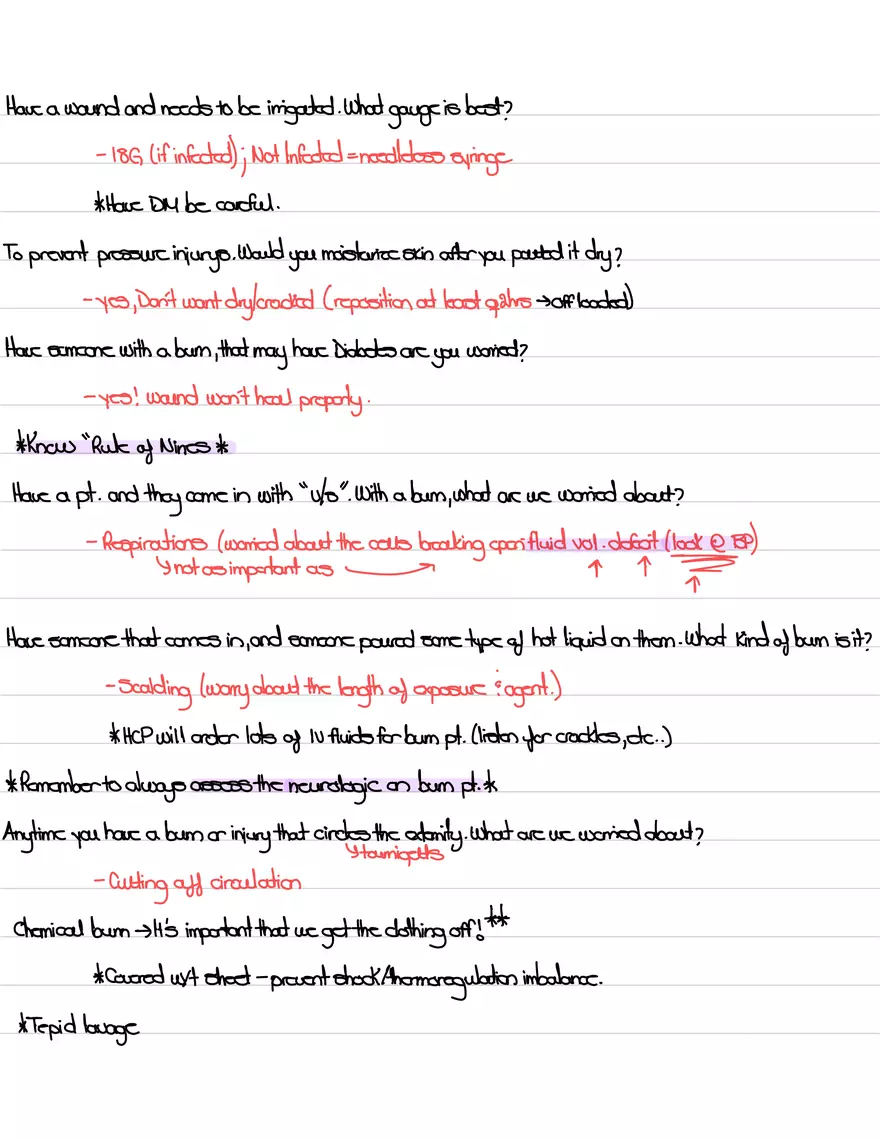 Have a wound and needs to be irrigated. What gauge is best?
- 18G (if infected); Not Infected = needleless syringe
*Have DM be careful.
To prevent pressure injurys. Would you moisturize skin after you patted it dry?
- yes, Don't want dry/cracked (reposition at least q2hrs → off loaded)
Have someone with a burn, that may have Diabetes are you worried?
- yes! wound won't heal properly.
*Know "Rule of Nines*
Have a pt. and they come in with "u/o". With a burn, what are we worried about?
- Respirations (worried about the cells breaking open fluid vol. deficit (look @ BP)
↳ not as important as → ↑ ↑ ↑
Have someone that comes in, and someone poured some type of hot liquid on them. What kind of burn is it?
- Scalding (worry about the length of exposure & agent.)
*HCP will order lots of IV fluids for burn pt. (listen for crackles, etc..)
*Remember to always assess the neurologic on burn pt.*
Anytime you have a burn or injury that circles the extremity. What are we worried about?
↳ tourniquets
- Cutting off circulation
Chemical burn → It's important that we get the clothing off!**
*Covered w/ sheet - prevent shock/thermoregulation imbalance.
*Tepid lavage